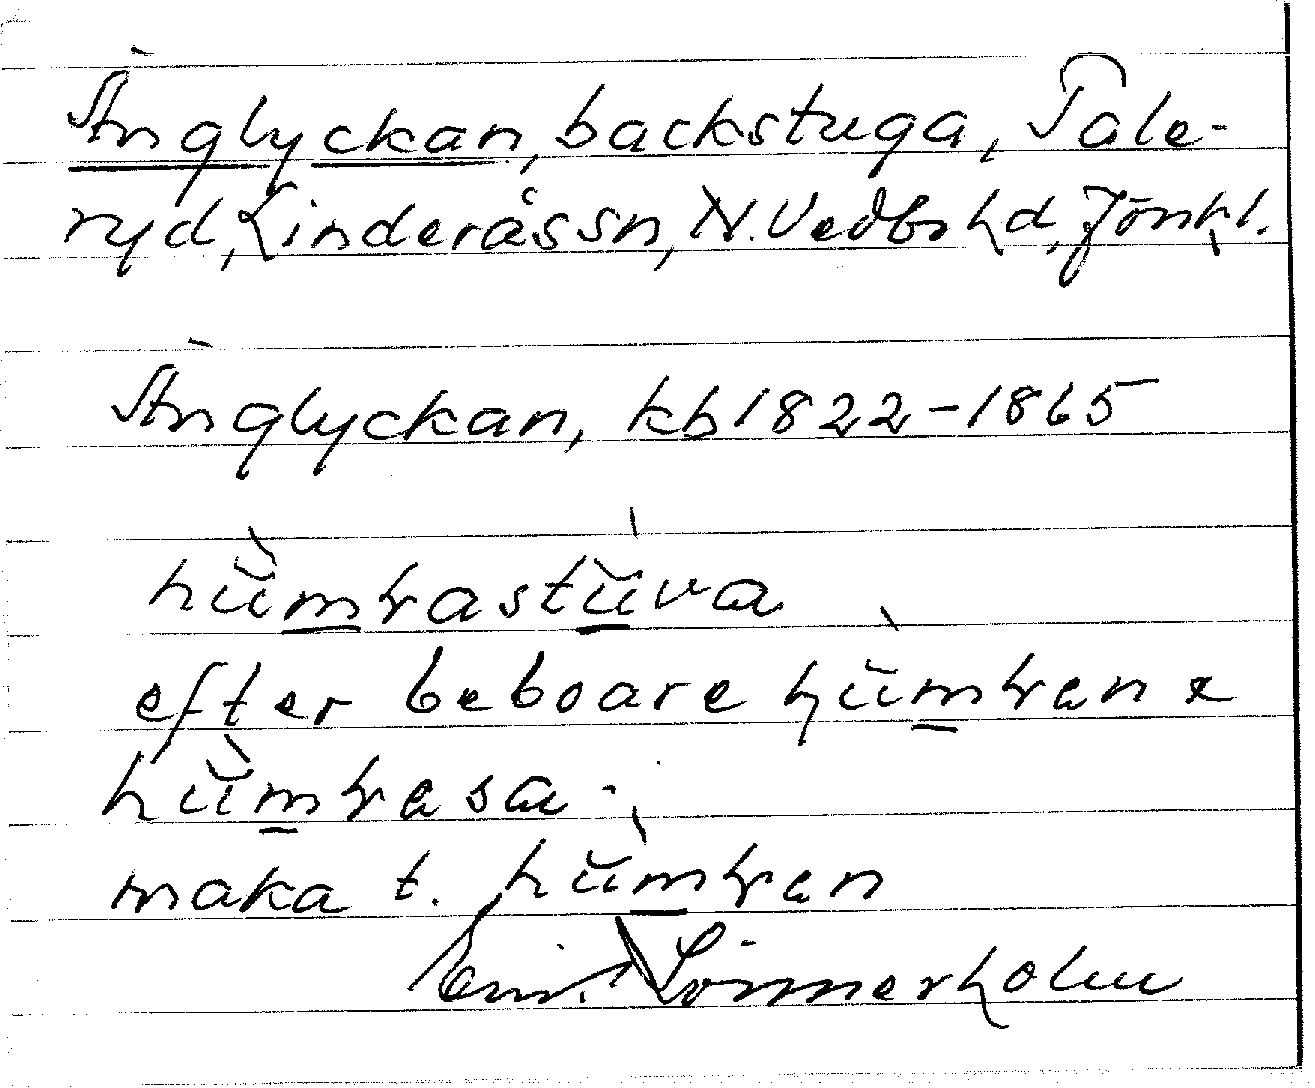 Änglyckan, backstuga, Tale-
ryd, Linderås sn, N. Vedbo hd, Jönk l.
Änglyckan, kb 1822-1865
hŭ̀mrastŭ̀va
efter beboare hŭ̀mren &
hŭ̀mresa -
maka t. hŭ̀mren
Lönnerholm